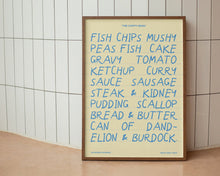 THE CHIPPY MENU
FISH CHIPS MUSHY
PEAS FISH CAKE
GRAVY TOMATO
KETCHUP CURRY
SAUCE SAUSAGE
STEAK & KIDNEY
PUDDING SCALLOP
BREAD & BUTTER
CAN OF DAND-
ELION & BURDOCK